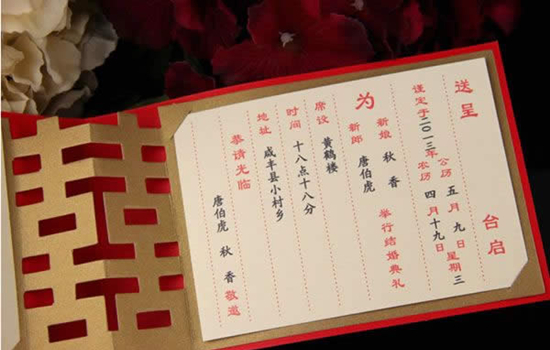 送呈 台启
谨定于二〇一三年
公历 五月九日 星期三
农历 四月十九日
为
新娘 秋香
新郎 唐伯虎
举行结婚典礼
席设 黄鹤楼
时间 十八点十八分
地址 咸丰县小村乡
恭请光临
唐伯虎 秋香 敬邀